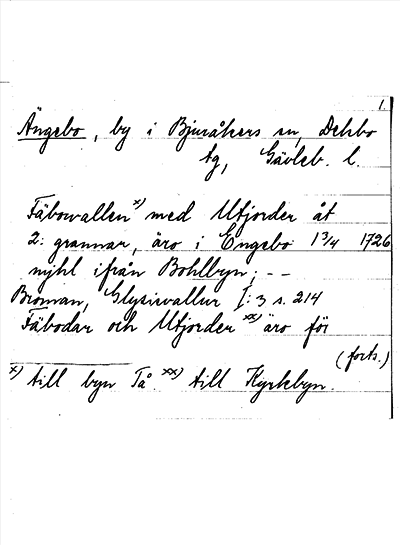 1.
Ängebo, by i Bjuråkers sn, Delsbo
tg, Gävleb. l.
Fäbowallen x) med Utjorder åt
2: grannar, äro i Engebo 1 3/4 1726
mijhl ifrån Bohlbyn; --
Broman, Glysisvallur I: 3 s. 214
Fäbodar och Utjorder xx) äro för
(forts.)
x) till byn Tå. xx) till Kyrkbyn.